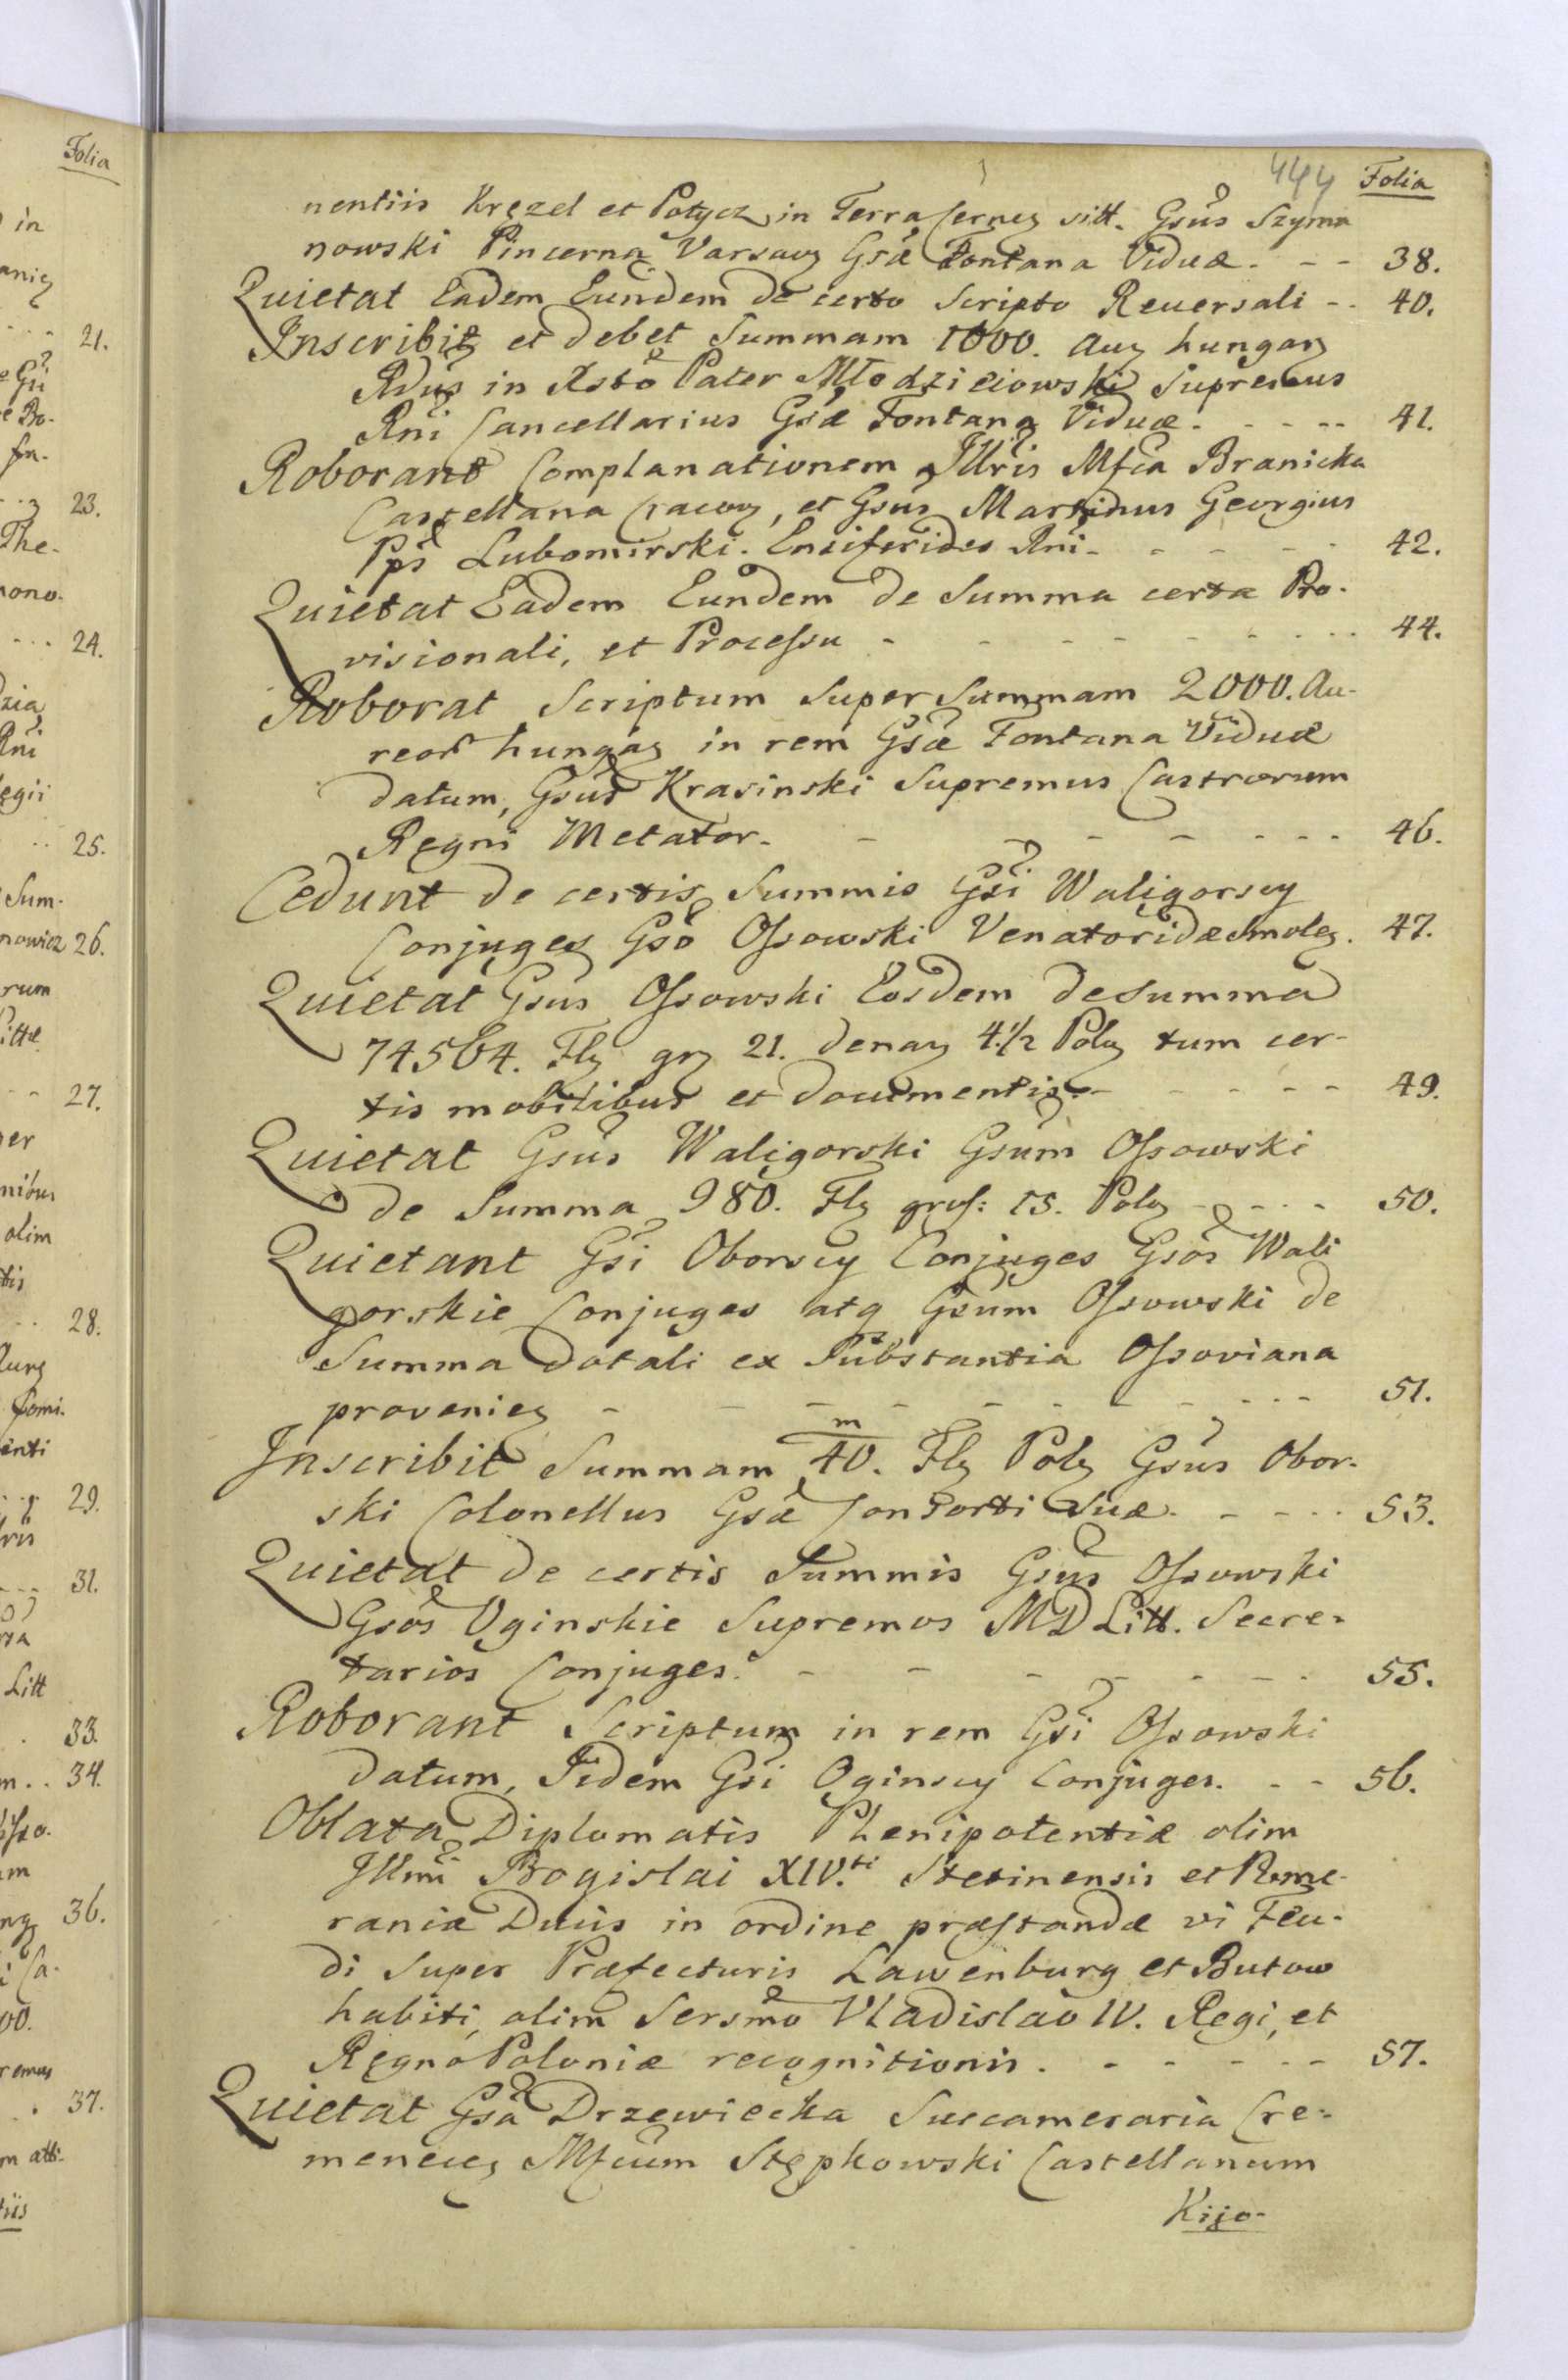 444 Folia
nentiis Kręzel et Potycz in Terra Cerneg sitt. Gsus Szyma
nowski Pincerna Varsavg Gsæ Fontana Viduæ. - - 38.
Quietat Eadem Eundem de certo Scripto Reversali - - 40.
Inscribit et debet Summam 1000. Aug hungarg
Rdus in Xsto Pater Młodzieiowski Supremus
Rni Cancellarius Gsæ Fontana Viduæ. - - - - 41.
Roborant Complanationem Illris Mfca Branicka
Castellana Cracovg, et Gsus Martinus Georgius
Pps Lubomirski. Ensiferides Rni - - - - - 42.
Quietat Eadem Eundem de Summa certa Pro-
visionali, et Processu - - - - - - - 44.
Roborat Scriptum super Summam 2000. Au-
reor hungag in rem Gsæ Fontana Viduæ
datum, Gsus Krasinski Supremus Castrorum
Regni Metator. - - - - - - - 46.
Cedunt de certis Summis Gsi Waligorscy
Conjuges Gso Ossowski Venatoridæ Smoleg. 47.
Quietat Gsus Ossowski Eosdem de summa
74564. Flg grg 21. denag 4 1/2 Polg tum cer-
tis mobilibus et documentis. - - - - - 49.
Quietat Gsus Waligorski Gsum Ossowski
de Summa 980. Flg gros: 15. Polg - - - - 50.
Quietant Gsi Oborscy Conjuges Gsos Wali
gorskie Conjuges atq Gsum Ossowski de
Summa dotali ex Substantia Ossoviana
provenieg - - - - - - - - - 51.
Inscribit Summam m/40. Flg Polg Gsus Obor-
ski Colonellus Gsæ Consorti Suæ. - - - - 53.
Quietat de certis Summis Gsus Ossowski
Gsos Oginskie Supremos MD Litt. Secre-
tarios Conjuges. - - - - - - - 55.
Roborant Scriptum in rem Gsi Ossowski
datum, Iidem Gsi Oginscy Conjuges. - - 56.
Oblata Diplomatis Plenipotentiæ olim
Illmi Bogislai XIV.ti Stetinensis et Pome-
raniæ Ducis in ordine præstandæ vi Feu-
di super Præfecturis Lawenburg et Butow
habiti, olim Sersmo Vladislao IV. Regi, et
Regno Poloniæ recognitionis. - - - - - 57.
Quietat Gsa Drzewiecka Succameraria Cre-
meneceg Mfcum Stępkowski Castellanum
Kijo-
Folia
in
21.
23.
The-
24.
25.
Sum-
nowicz 26.
rum
27.
olim
28.
29.
31.
Litt
33.
34.
36.
37.